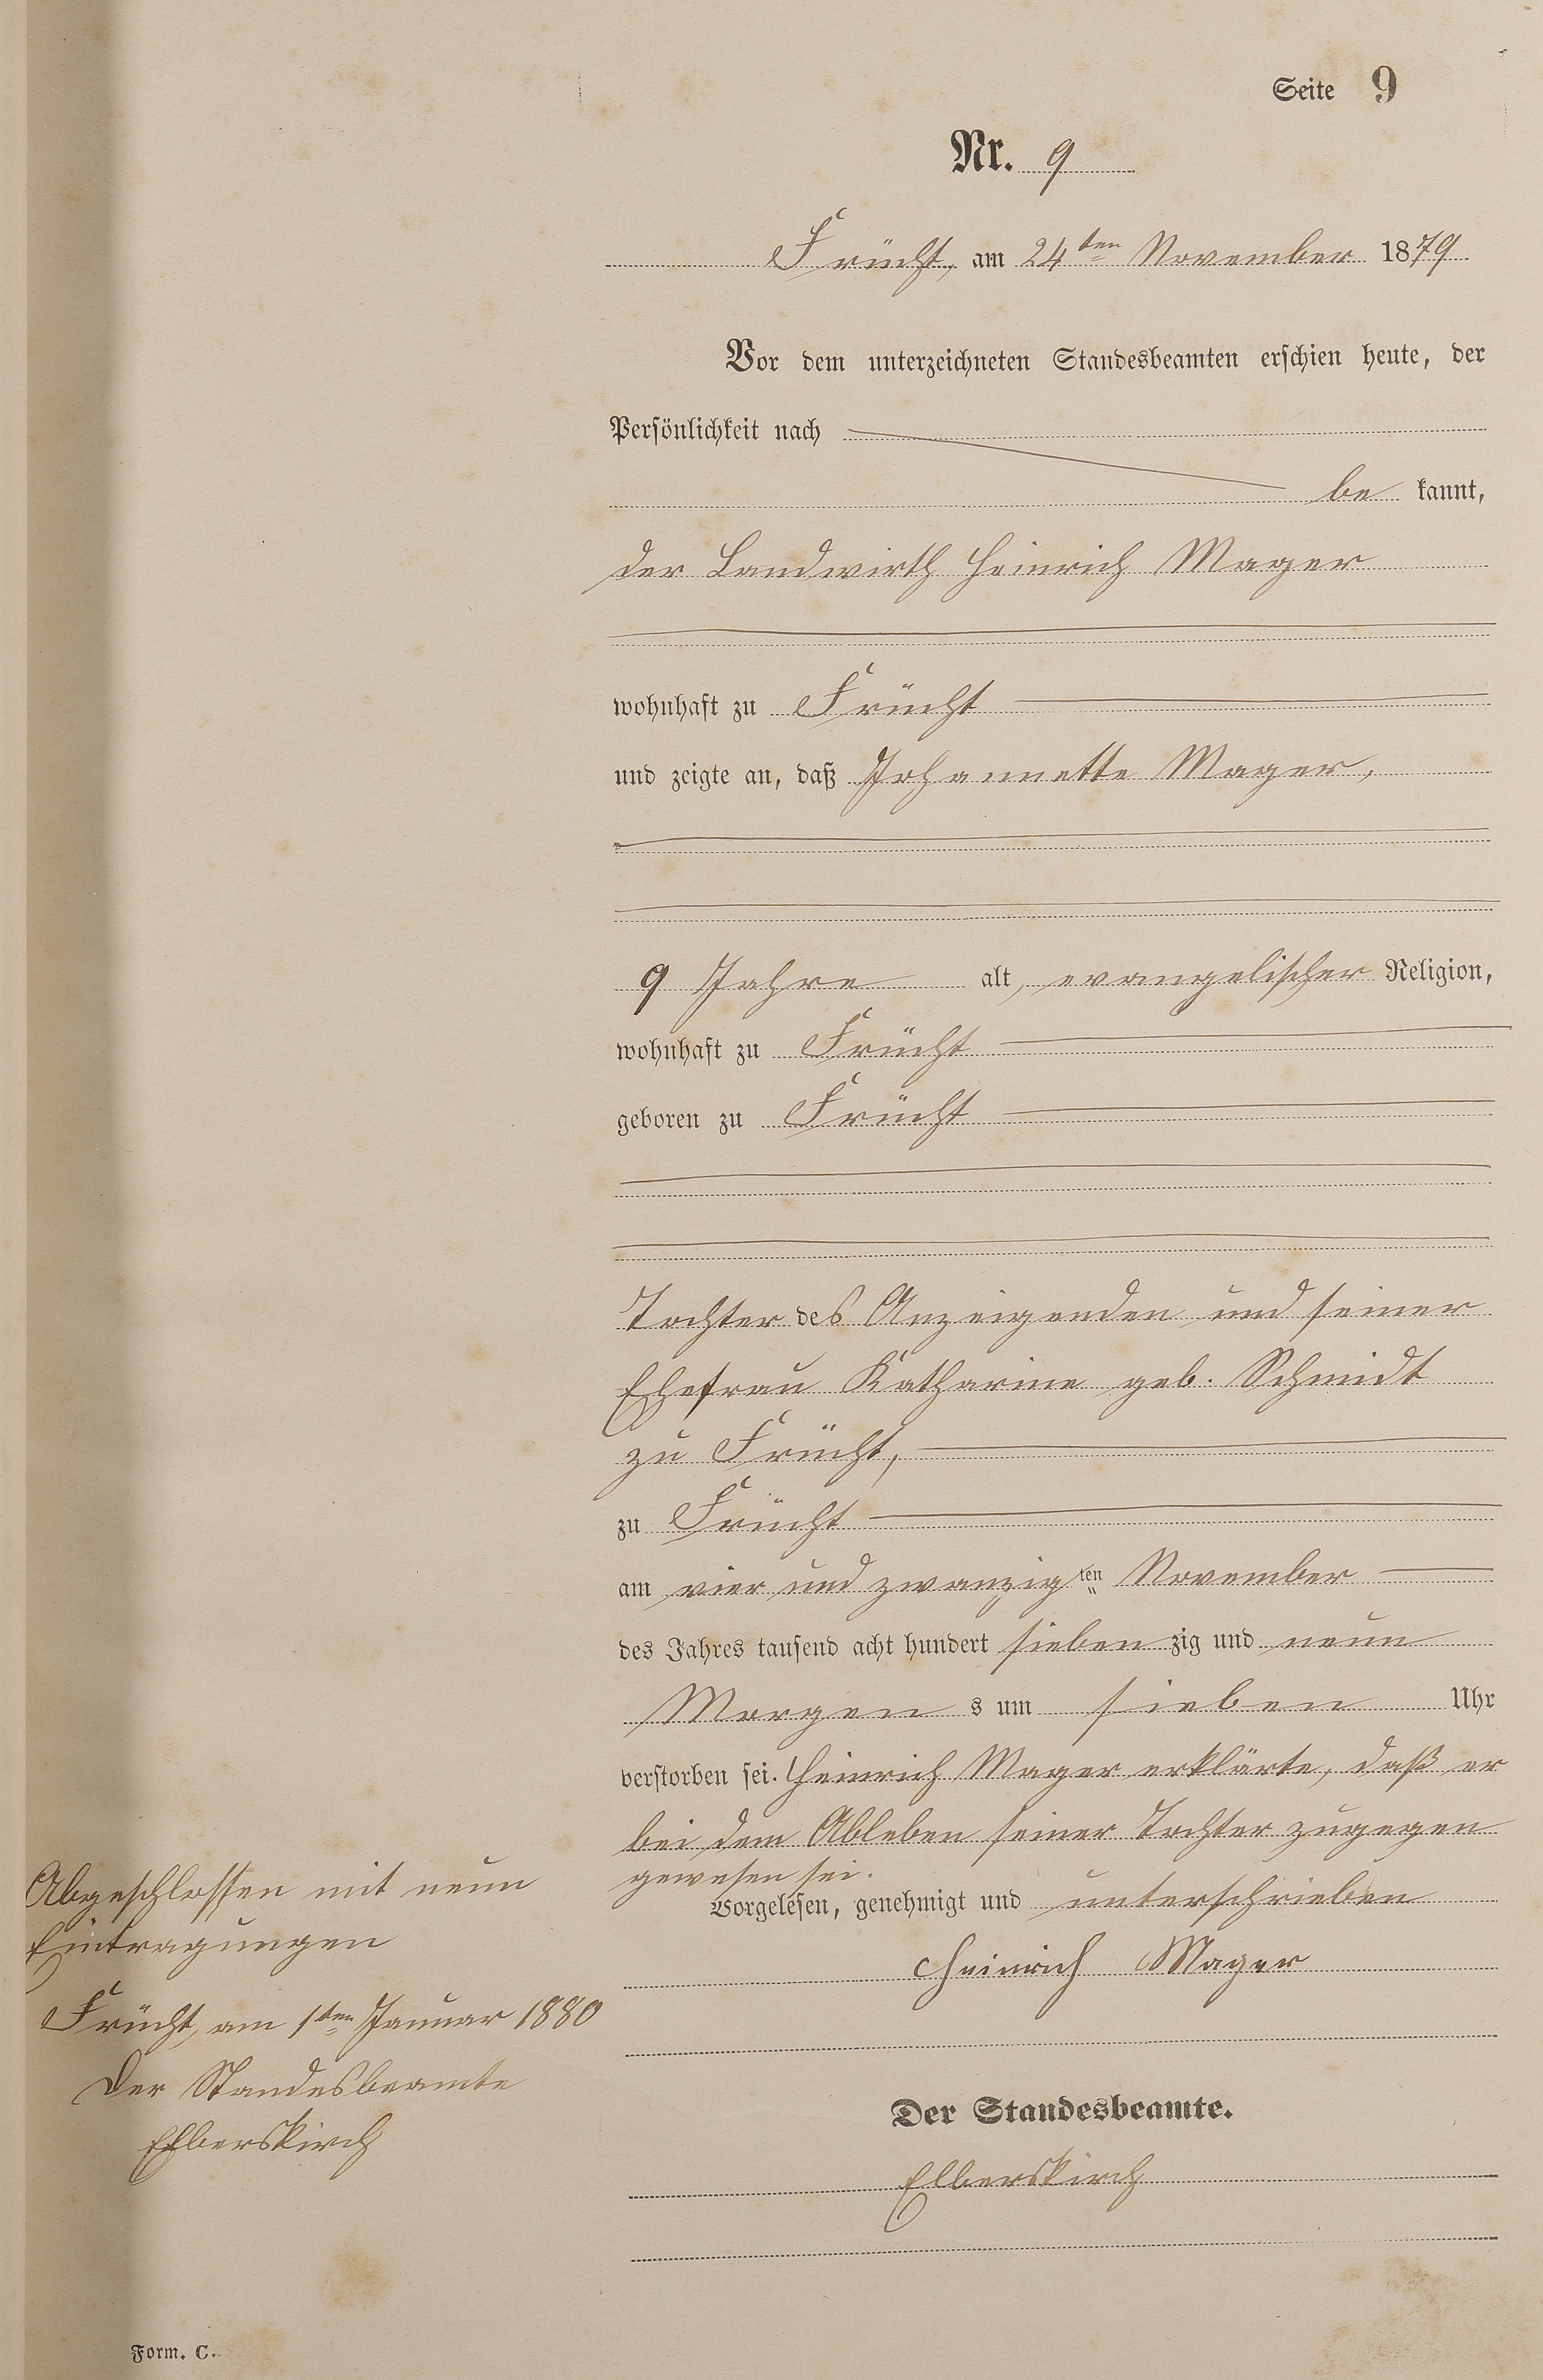 Seite 9
Nr. 9
Frücht, am 24ten November 1879
Vor dem unterzeichneten Standesbeamten erschien heute, der
Persönlichkeit nach
be kannt,
der Landwirth Heinrich Mager
wohnhaft zu Frücht
und zeigte an, daß Johannette Mager,
9 Jahre alt, evangelischer Religion,
wohnhaft zu Frücht
geboren zu Frücht
Tochter des Anzeigenden und seiner
Ehefrau Katharine geb. Schmidt
zu Frücht,
zu Frücht
am vier und zwanzigten November
des Jahres tausend acht hundert sieben zig und neun
Morgen s um sieben Uhr
verstorben sei. Heinrich Mager erklärte, daß er
bei dem Ableben seiner Tochter zugegen
gewesen sei.
Vorgelesen, genehmigt und unterschrieben
Heinrich Mager
Der Standesbeamte.
Elberskirch
Abgeschlossen mit neun
Eintragungen
Frücht, am 1ten Januar 1880
Der Standesbeamte
Elberskirch
Form. C.